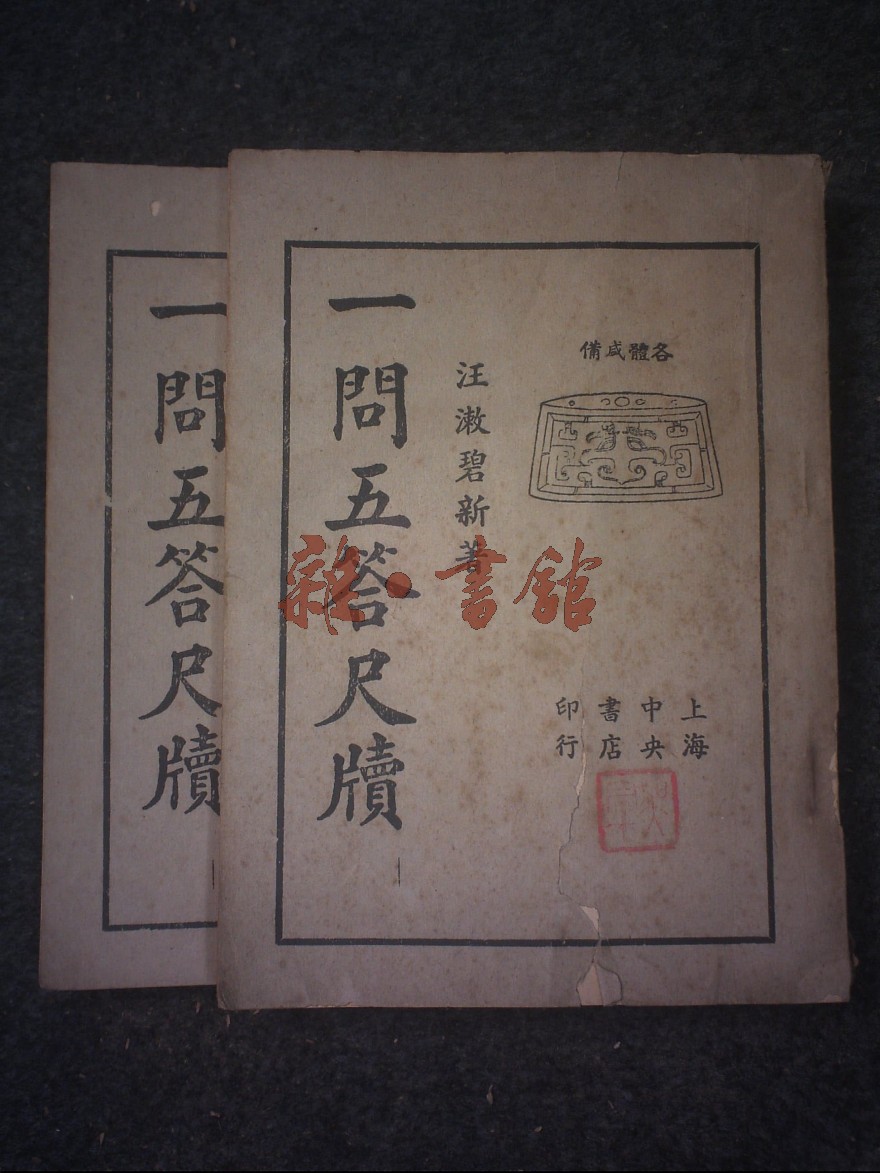 各體咸備
汪漱碧新著
一問五答尺牘
上海
中央
書店
印行
一問五答尺牘
雜·書館